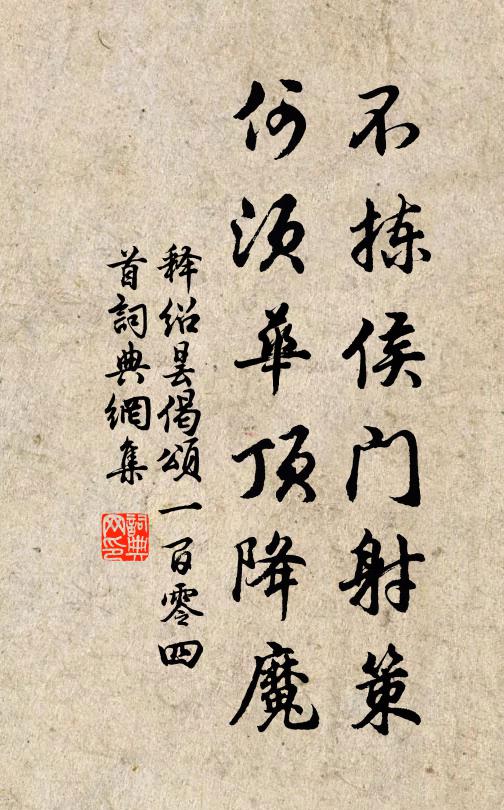 不拣侯门射策
何须华顶降魔
释绍昙偈颂一百零四
首詞典網集
詞典网印